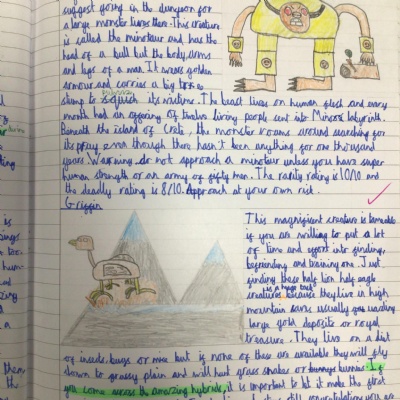 suggest going in the dungeon for
a large monster lives there. This creature
is called the minotaur and has the
head of a bull but the body, arms
and legs of a man. It wears golden
armour and carries a big
stump to squish its victims. The beast lives on human flesh and every
month had an offering of twelve living people sent into Minoss labyrinth.
Beneath the island of Crete, the monster roams around searching for
its prey even though there hasn't been anything for one thousand
years. Warning do not approach a minotaur unless you have super
human strength or an army of fifty men. The rarity rating is 10/10 and
the deadly rating is 8/10. Approach at your own risk.
Griffin
This magnificent creature is tameable
if you are willing to put a lot
of time and effort into finding,
befriending and training one. Just
finding these half lion half eagle
is a huge task
creatures because they live in high
mountain caves usually guarding
large gold deposits or royal
treasure. They live on a diet
of insects, bugs or mice but if none of these are available they will fly
down to grassy plain and will hunt grass snakes or bunnies. If
you come across the amazing hybrids, it is important to let it make the first
still congratulations you are